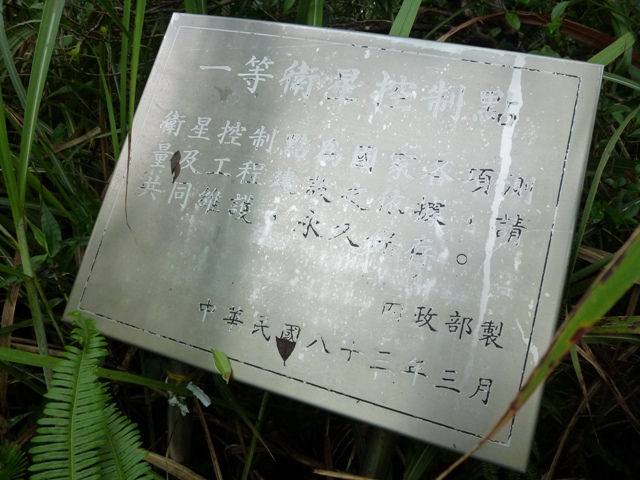 一等衛星控制點
衛星控制點為國家各項測
量及工程建設之依據，請
共同維護，永久保存。
內政部製
中華民國八十二年三月